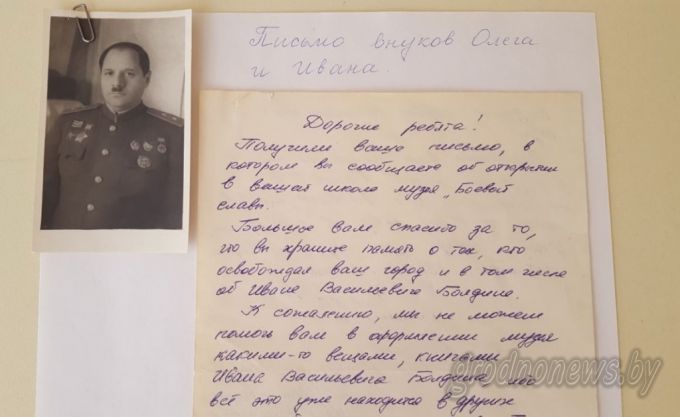 Письмо внуков Олега
и Ивана.
Дорогие ребята!
Получили ваше письмо, в
котором вы сообщаете об открытии
в вашей школе музея „Боевой
славы.
Большое вам спасибо за то,
что вы храните память о тех, кто
освобождал ваш город и в том числе
об Иване Васильевиче Болдине.
К сожалению, мы не можем
помочь вам в оформлении музея
какими-то вещами, книгами
Ивана Васильевича Болдина,
всё это уже находится в других
grodnonews.by